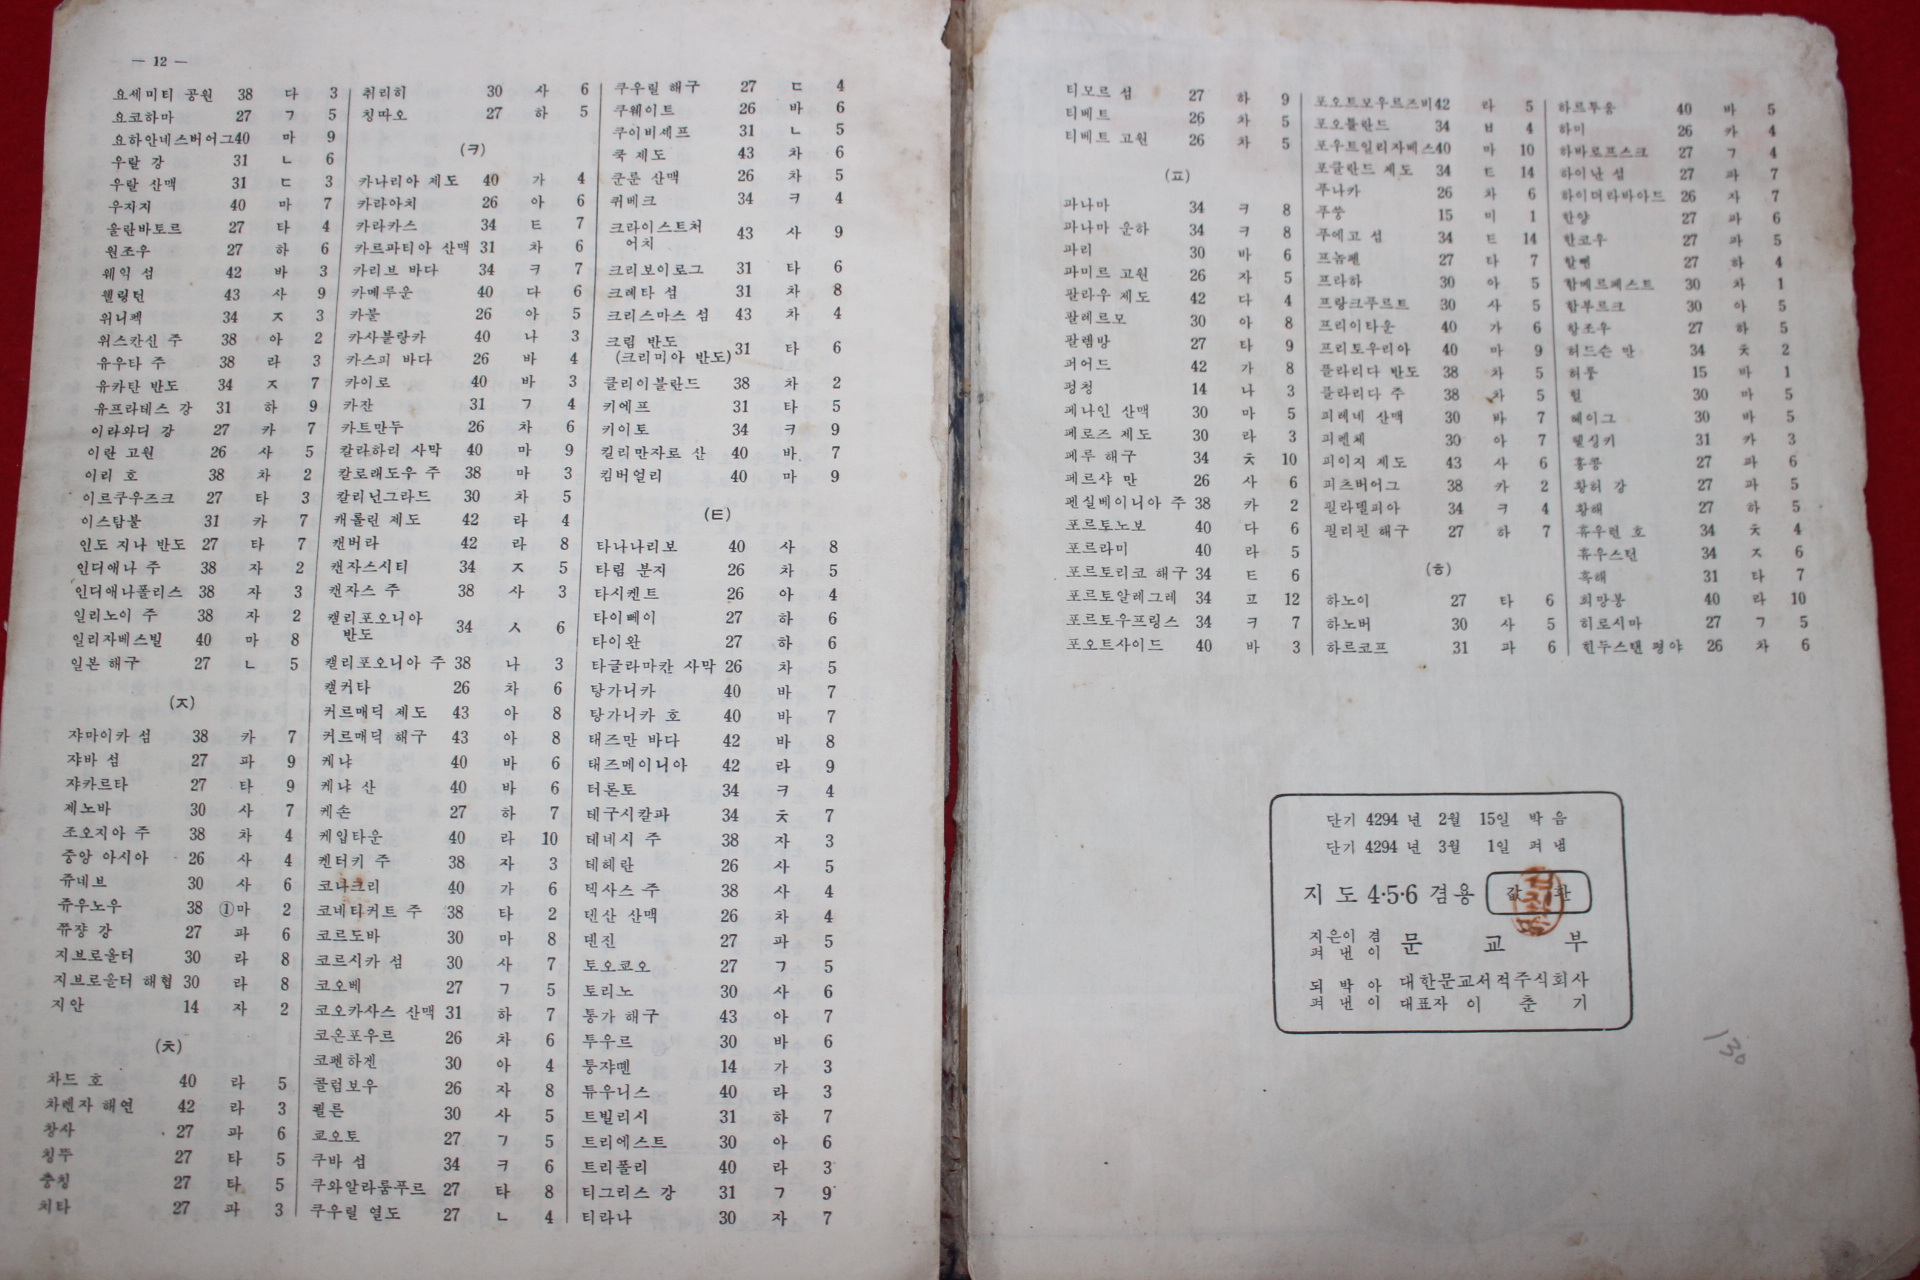 — 12 —
요세미티 공원 38 다 3
요코하마 27 ㄱ 5
요하안네스버어그 40 마 9
우랄 강 31 ㄴ 6
우랄 산맥 31 ㄷ 3
우지지 40 마 7
울란바토르 27 타 4
원조우 27 하 6
웨익 섬 42 바 3
웰링턴 43 사 9
위니펙 34 ㅈ 3
위스칸신 주 38 아 2
유우타 주 38 라 3
유카탄 반도 34 ㅈ 7
유프라테스 강 31 하 9
이라와디 강 27 카 7
이란 고원 26 사 5
이리 호 38 차 2
이르쿠우즈크 27 타 3
이스탐불 31 카 7
인도 지나 반도 27 타 7
인디애나 주 38 자 2
인디애나폴리스 38 자 3
일리노이 주 38 자 2
일리자베스빌 40 마 8
일본 해구 27 ㄴ 5
(ㅈ)
쟈마이카 섬 38 카 7
쟈바 섬 27 파 9
쟈카르타 27 타 9
제노바 30 사 7
조오지아 주 38 차 4
중앙 아시아 26 사 4
쥬네브 30 사 6
쥬우노우 38 ①마 2
쮸쟝 강 27 파 6
지브로울터 30 라 8
지브로울터 해협 30 라 8
지안 14 자 2
(ㅊ)
차드 호 40 라 5
차렌자 해연 42 라 3
창사 27 파 6
칭뚜 27 타 5
충칭 27 타 5
치타 27 파 3
취리히 30 사 6
칭따오 27 하 5
(ㅋ)
카나리아 제도 40 가 4
카라아치 26 아 6
카라카스 34 ㅌ 7
카르파티아 산맥 31 차 6
카리브 바다 34 ㅋ 7
카메루운 40 다 6
카불 26 아 5
카사블랑카 40 나 3
카스피 바다 26 바 4
카이로 40 바 3
카잔 31 ㄱ 4
카트만두 26 차 6
칼라하리 사막 40 마 9
칼로래도우 주 38 마 3
칼리닌그라드 30 차 5
캐롤린 제도 42 라 4
캔버라 42 라 8
캔자스시티 34 ㅈ 5
캔자스 주 38 사 3
캘리포오니아
반도 34 ㅅ 6
캘리포오니아 주 38 나 3
캘커타 26 차 6
커르매딕 제도 43 아 8
커르매딕 해구 43 아 8
케냐 40 바 6
케냐 산 40 바 6
케손 27 하 7
케입타운 40 라 10
켄터키 주 38 자 3
코나크리 40 가 6
코네티커트 주 38 타 2
코르도바 30 마 8
코르시카 섬 30 사 7
코오베 27 ㄱ 5
코오카사스 산맥 31 하 7
코온포우르 26 차 6
코펜하겐 30 아 4
콜럼보우 26 자 8
쾰른 30 사 5
쿄오토 27 ㄱ 5
쿠바 섬 34 ㅋ 6
쿠와알라룸푸르 27 타 8
쿠우릴 열도 27 ㄴ 4
쿠우릴 해구 27 ㄷ 4
쿠웨이트 26 바 6
쿠이비셰프 31 ㄴ 5
쿡 제도 43 차 6
쿤룬 산맥 26 차 5
퀴베크 34 ㅋ 4
크라이스트처
어치 43 사 9
크리보이로그 31 타 6
크레타 섬 31 차 8
크리스마스 섬 43 차 4
크림 반도
(크리미아 반도) 31 타 6
클리이블란드 38 차 2
키에프 31 타 5
키이토 34 ㅋ 9
킬리만자로 산 40 바 7
킴버얼리 40 마 9
(ㅌ)
타나나리보 40 사 8
타림 분지 26 차 5
타시켄트 26 아 4
타이뻬이 27 하 6
타이완 27 하 6
타글라마칸 사막 26 차 5
탕가니카 40 바 7
탕가니카 호 40 바 7
태즈만 바다 42 바 8
태즈메이니아 42 라 9
터론토 34 ㅋ 4
테구시칼파 34 ㅊ 7
테네시 주 38 자 3
테헤란 26 사 5
텍사스 주 38 사 4
텐산 산맥 26 차 4
텐진 27 파 5
토오쿄오 27 ㄱ 5
토리노 30 사 6
통가 해구 43 아 7
투우르 30 바 6
퉁쟈멘 14 가 3
튜우니스 40 라 3
트빌리시 31 하 7
트리에스트 30 아 6
트리폴리 40 라 3
티그리스 강 31 ㄱ 9
티라나 30 자 7
티모르 섬 27 하 9
티베트 26 차 5
티베트 고원 26 차 5
(ㅍ)
파나마 34 ㅋ 8
파나마 운하 34 ㅋ 8
파리 30 바 6
파미르 고원 26 자 5
팔라우 제도 42 다 4
팔레르모 30 아 8
팔렘방 27 타 9
퍼어드 42 가 8
펑청 14 나 3
페나인 산맥 30 마 5
페로즈 제도 30 라 3
페루 해구 34 ㅊ 10
페르샤 만 26 사 6
펜실베이니아 주 38 카 2
포르토노보 40 다 6
포르라미 40 라 5
포르토리코 해구 34 ㅌ 6
포르토알레그레 34 ㅍ 12
포르토우프링스 34 ㅋ 7
포오트사이드 40 바 3
포오트모우르즈비 42 라 5
포오틀란드 34 ㅂ 4
포우트일리자베스 40 마 10
포클란드 제도 34 ㅌ 14
푸나카 26 차 6
푸쑹 15 미 1
푸에고 섬 34 ㅌ 14
프놈펜 27 타 7
프라하 30 아 5
프랑크푸르트 30 사 5
프리이타운 40 가 6
프리토우리아 40 마 9
플라리다 반도 38 차 5
플라리다 주 38 차 5
피레네 산맥 30 바 7
피렌체 30 아 7
피이지 제도 43 사 6
피츠버어그 38 카 2
필라델피아 34 ㅋ 4
필리핀 해구 27 하 7
(ㅎ)
하노이 27 타 6
하노버 30 사 5
하르코프 31 파 6
하르투움 40 바 5
하미 26 카 4
하바로프스크 27 ㄱ 4
하이난 섬 27 파 7
하이더라바아드 26 자 7
한양 27 파 6
한코우 27 파 5
할삔 27 하 4
함메르페스트 30 차 1
함부르크 30 아 5
항조우 27 하 5
허드슨 만 34 ㅊ 2
허룽 15 바 1
헐 30 마 5
헤이그 30 바 5
헬싱키 31 카 3
홍콩 27 파 6
황허 강 27 파 5
황해 27 하 5
휴우런 호 34 ㅊ 4
휴우스턴 34 ㅈ 6
흑해 31 타 7
희망봉 40 라 10
히로시마 27 ㄱ 5
힌두스탠 평야 26 차 6
단기 4294 년 2월 15일 박음
단기 4294 년 3월 1일 펴냄
지도 4·5·6 겸용 값 환
지은이 겸
펴 낸 이 문 교 부
되 박 아
펴 낸 이 대한문교서적주식회사
대표자 이 춘 기
130